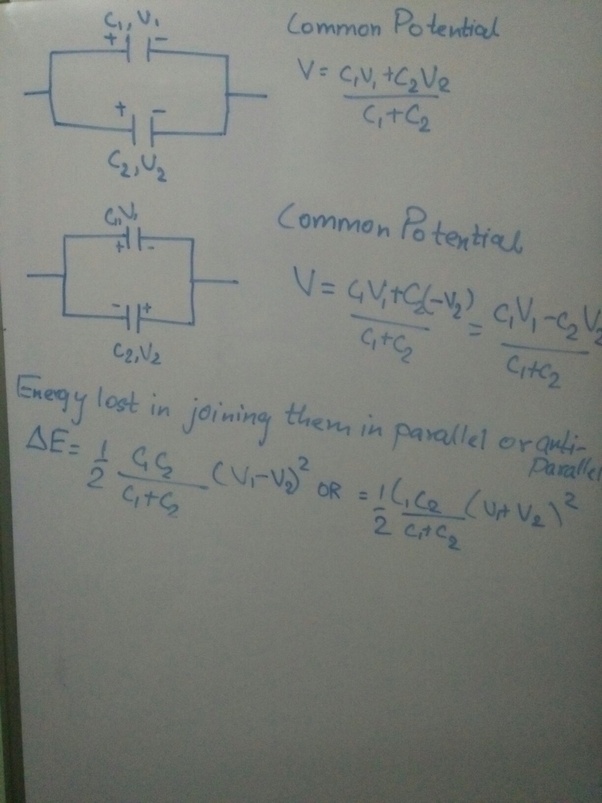 C₁, V₁
+ -
Common Potential
V = C₁V₁ + C₂V₂ / C₁ + C₂
+ -
C₂, V₂
C₁, V₁
+ -
Common Potential
V = C₁V₁ + C₂(-V₂) / C₁ + C₂ = C₁V₁ - C₂V₂ / C₁ + C₂
- +
C₂, V₂
Energy lost in joining them in parallel or anti-
parallel
ΔE = 1/2 C₁C₂ / C₁ + C₂ (V₁ - V₂)² OR = 1/2 C₁C₂ / C₁ + C₂ (V₁ + V₂)²